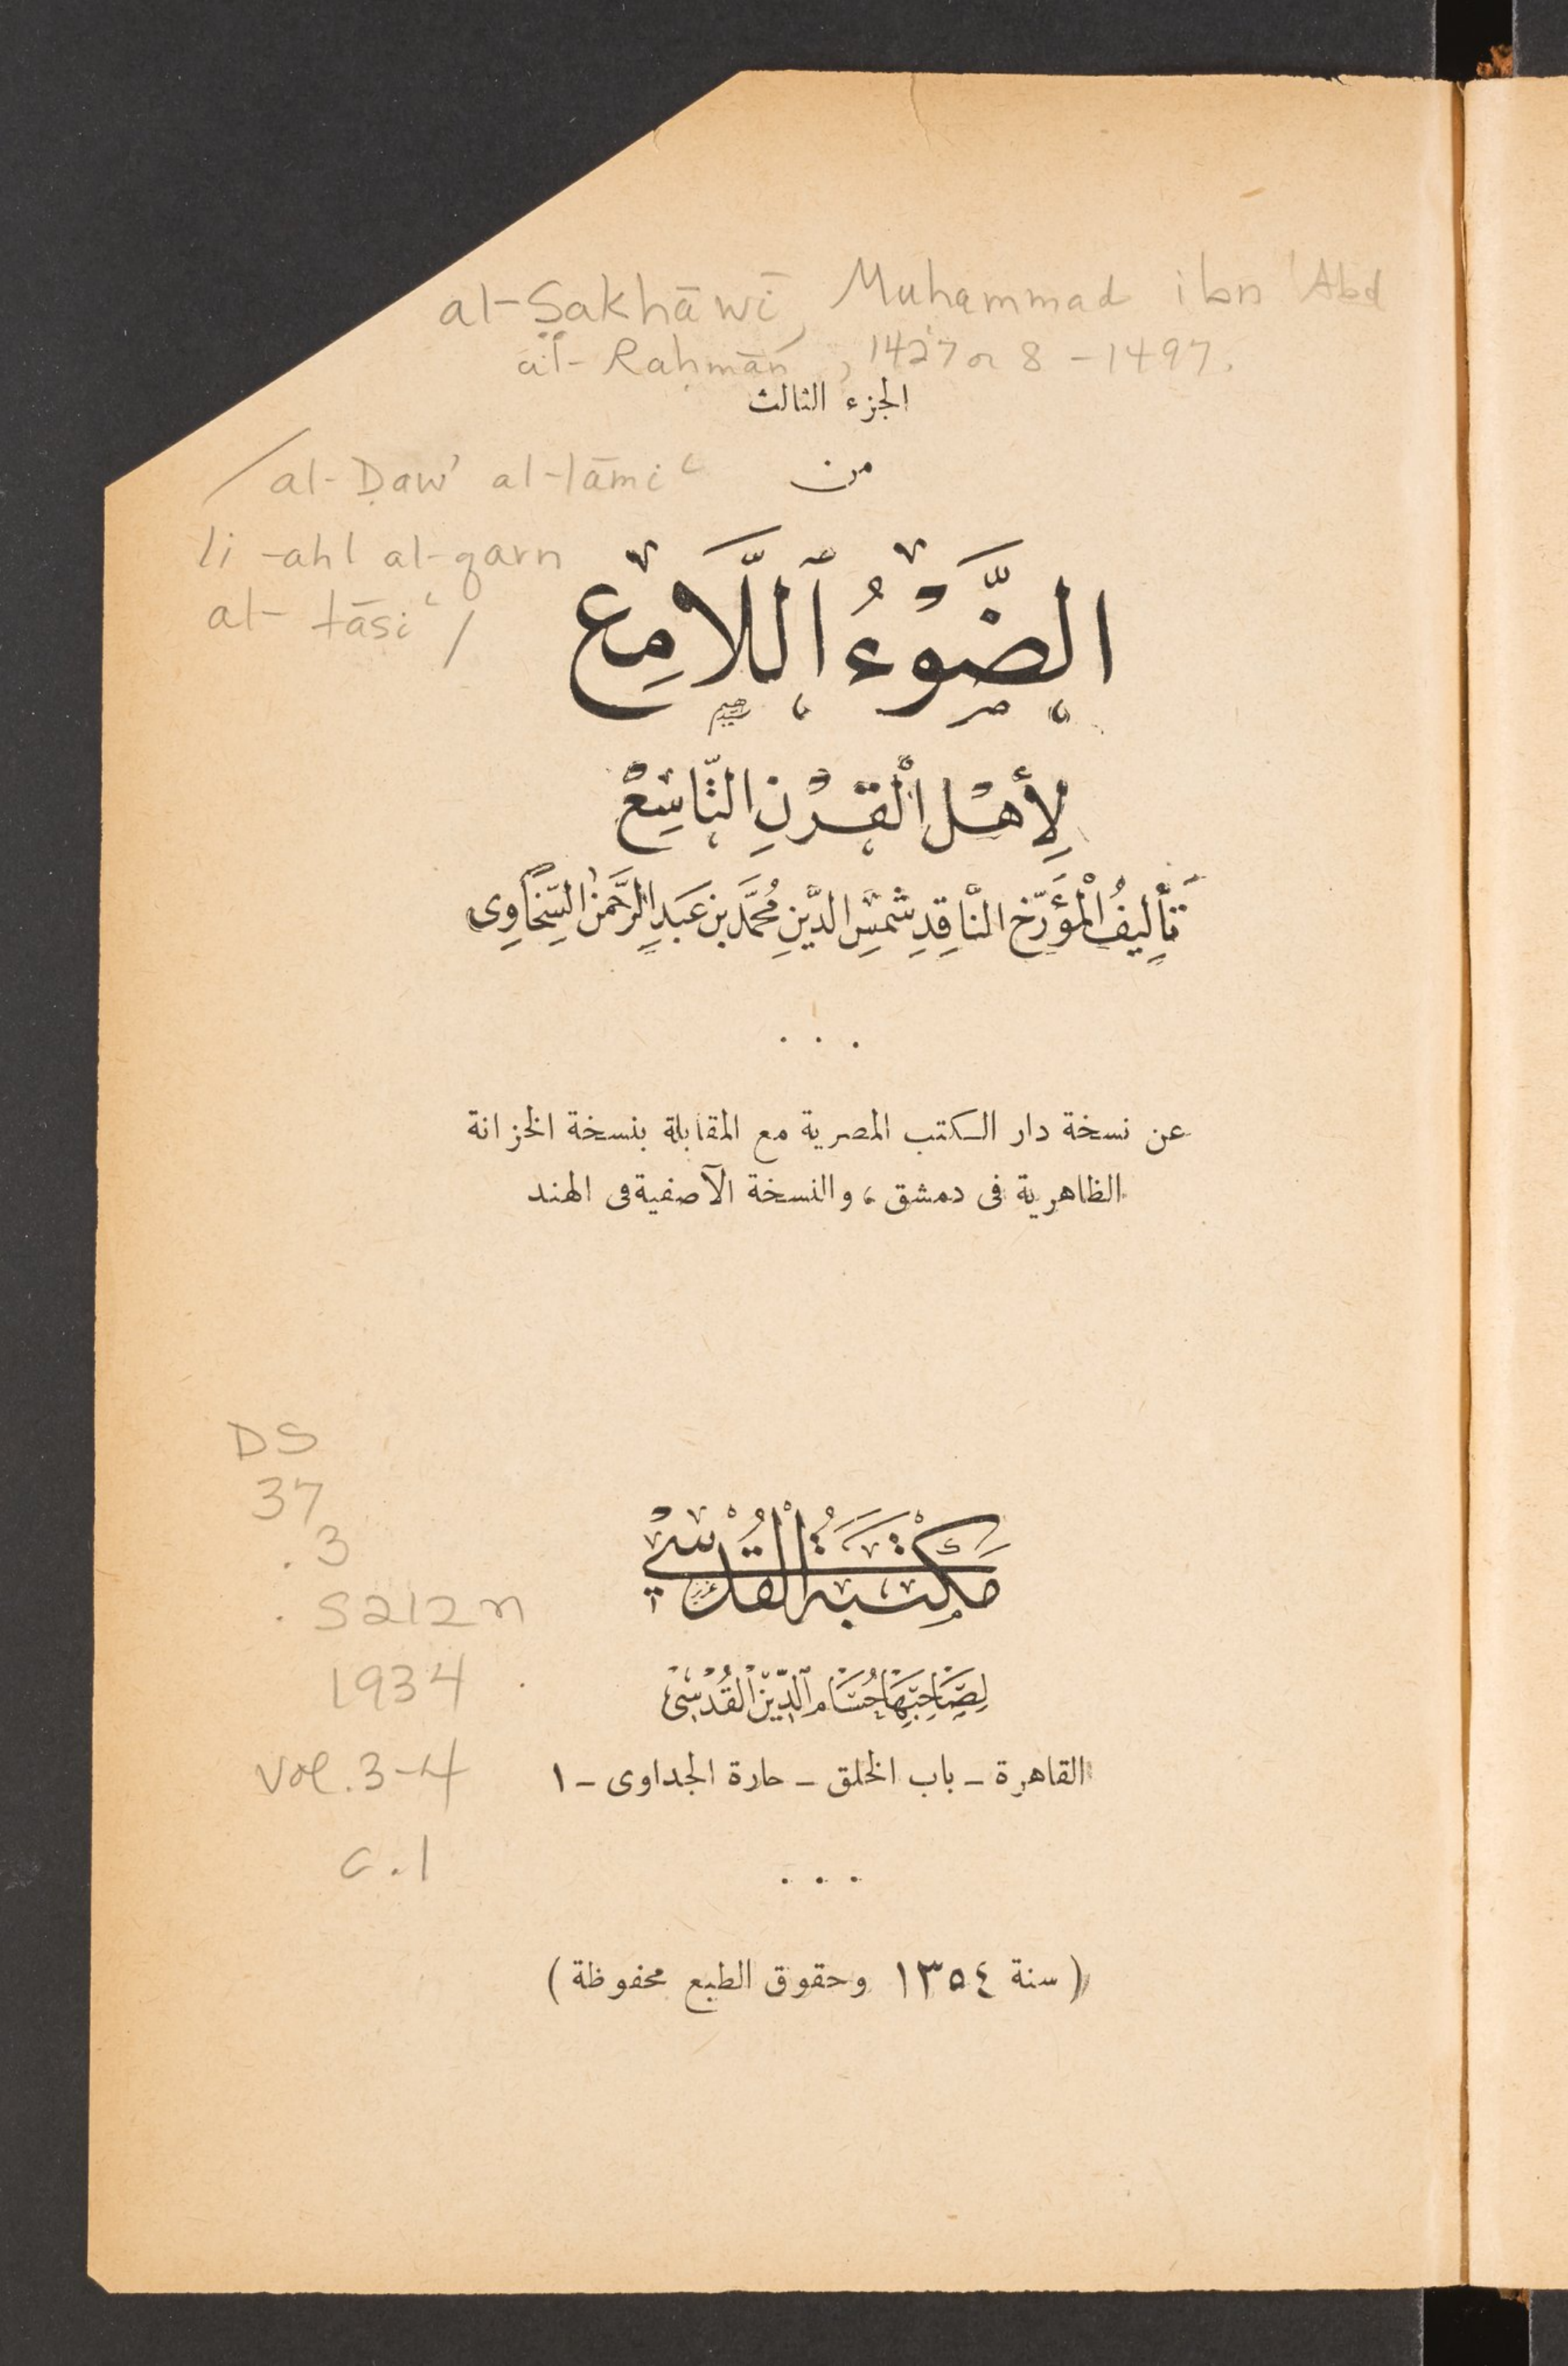 al-Sakhāwī, Muhammad ibn ʿAbd
al-Raḥmān, 1427 or 8 - 1497.
الجزء الثالث
من
/ al-Ḍaw' al-lāmiʿ
li-ahl al-qarn
al-tāsiʿ /
الضَّوْءُ ٱللَّامِع
لِأَهْلِ الْقَرْنِ التَّاسِعْ
تَأْلِيفُ الْمُؤَرِّخِ النَّاقِدِ شَمْسِ الدِّينِ مُحَمَّد بن عَبدِ الرَّحمٰن السَّخَاوِى
عن نسخة دار الكتب المصرية مع المقابلة بنسخة الخزانة
الظاهرية فى دمشق ، والنسخة الآصفية فى الهند
DS
37
.3
.S212n
1934
vol. 3-4
c.1
مَكْتَبَةُ الْقُدْسِي
لِصَاحِبِهَا حُسَام ٱلدِّيْن الْقُدْسِىْ
القاهرة ـ باب الخلق ـ حارة الجداوى ـ ١
( سنة ١٣٥٤ وحقوق الطبع محفوظة )